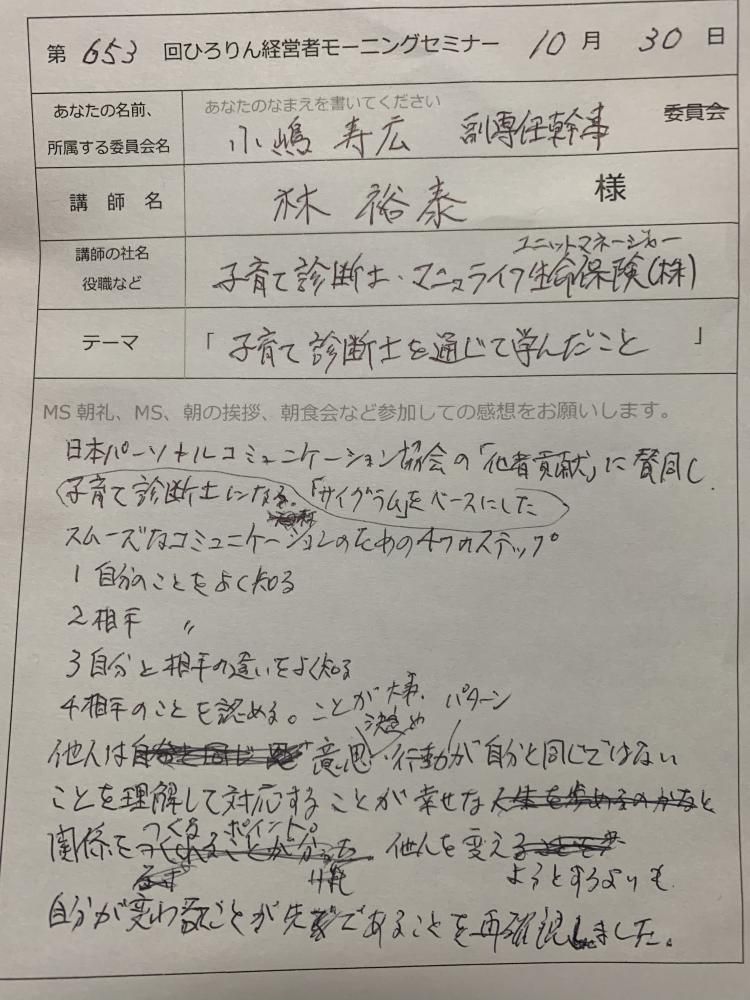 第 653 回ひろりん経営者モーニングセミナー 10 月 30 日
あなたの名前、
所属する委員会名
あなたのなまえを書いてください
小嶋 寿広 副専任幹事 委員会
講師名 林 裕泰 様
講師の社名
役職など
ユニットマネージャー
子育て診断士・マニュライフ生命保険(株)
テーマ 「子育て診断士を通じて学んだこと」
MS 朝礼、MS、朝の挨拶、朝食会など参加しての感想をお願いします。
日本パーソナルコミュニケーション協会の「他者貢献」に賛同し
子育て診断士になる。「サイグラム」をベースにした
スムーズなコミュニケーションのための4つのステップ
1 自分のことをよく知る
2 相手 〃
3 自分と相手の違いをよく知る
4 相手のことを認める。ことが大事。
決め パターン
他人は 意思・行動が自分と同じではない
ことを理解して対応することが幸せな
つくるポイント。
関係を 他人を変え
ようとするよりも
自分が変わることが先であることを再確認しました。